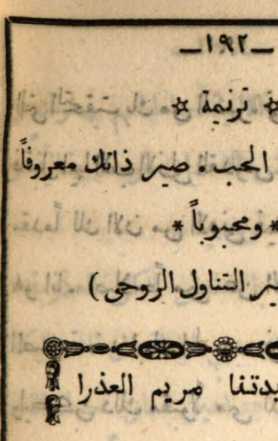 ـ١٩٢ـ
* ترنيمة *
الحب . صير ذاتك معروفاً
* ومحبوباً *
التناول الروحى )
مريم العذرا